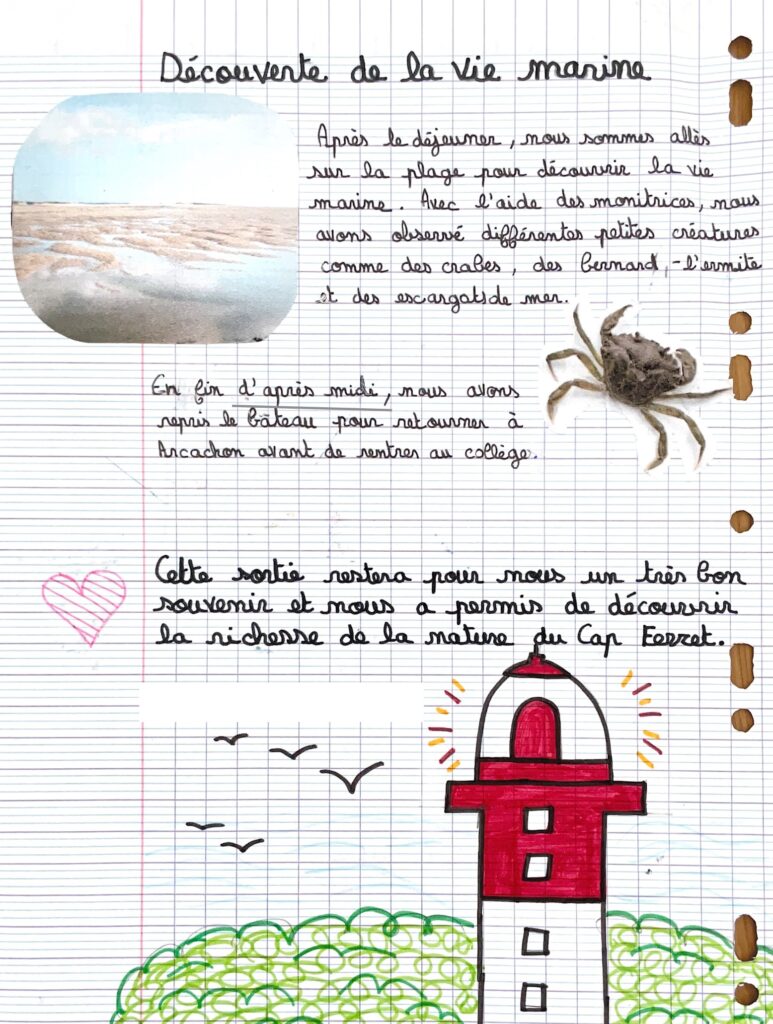 Découverte de la vie marine
Après le déjeuner, nous sommes allès
sur la plage pour découvrir la vie
marine. Avec l'aide des monitrices, nous
avons observé différentes petites créatures
comme des crabes, des bernard,-l'ermite
et des escargots de mer.
En fin d'après midi, nous avons
repris le bâteau pour retourner à
Arcachon avant de rentres au collège.
Cette sortie restera pour nous un très bon
souvenir et nous a permis de découvrir
la richesse de la nature du Cap Ferret.